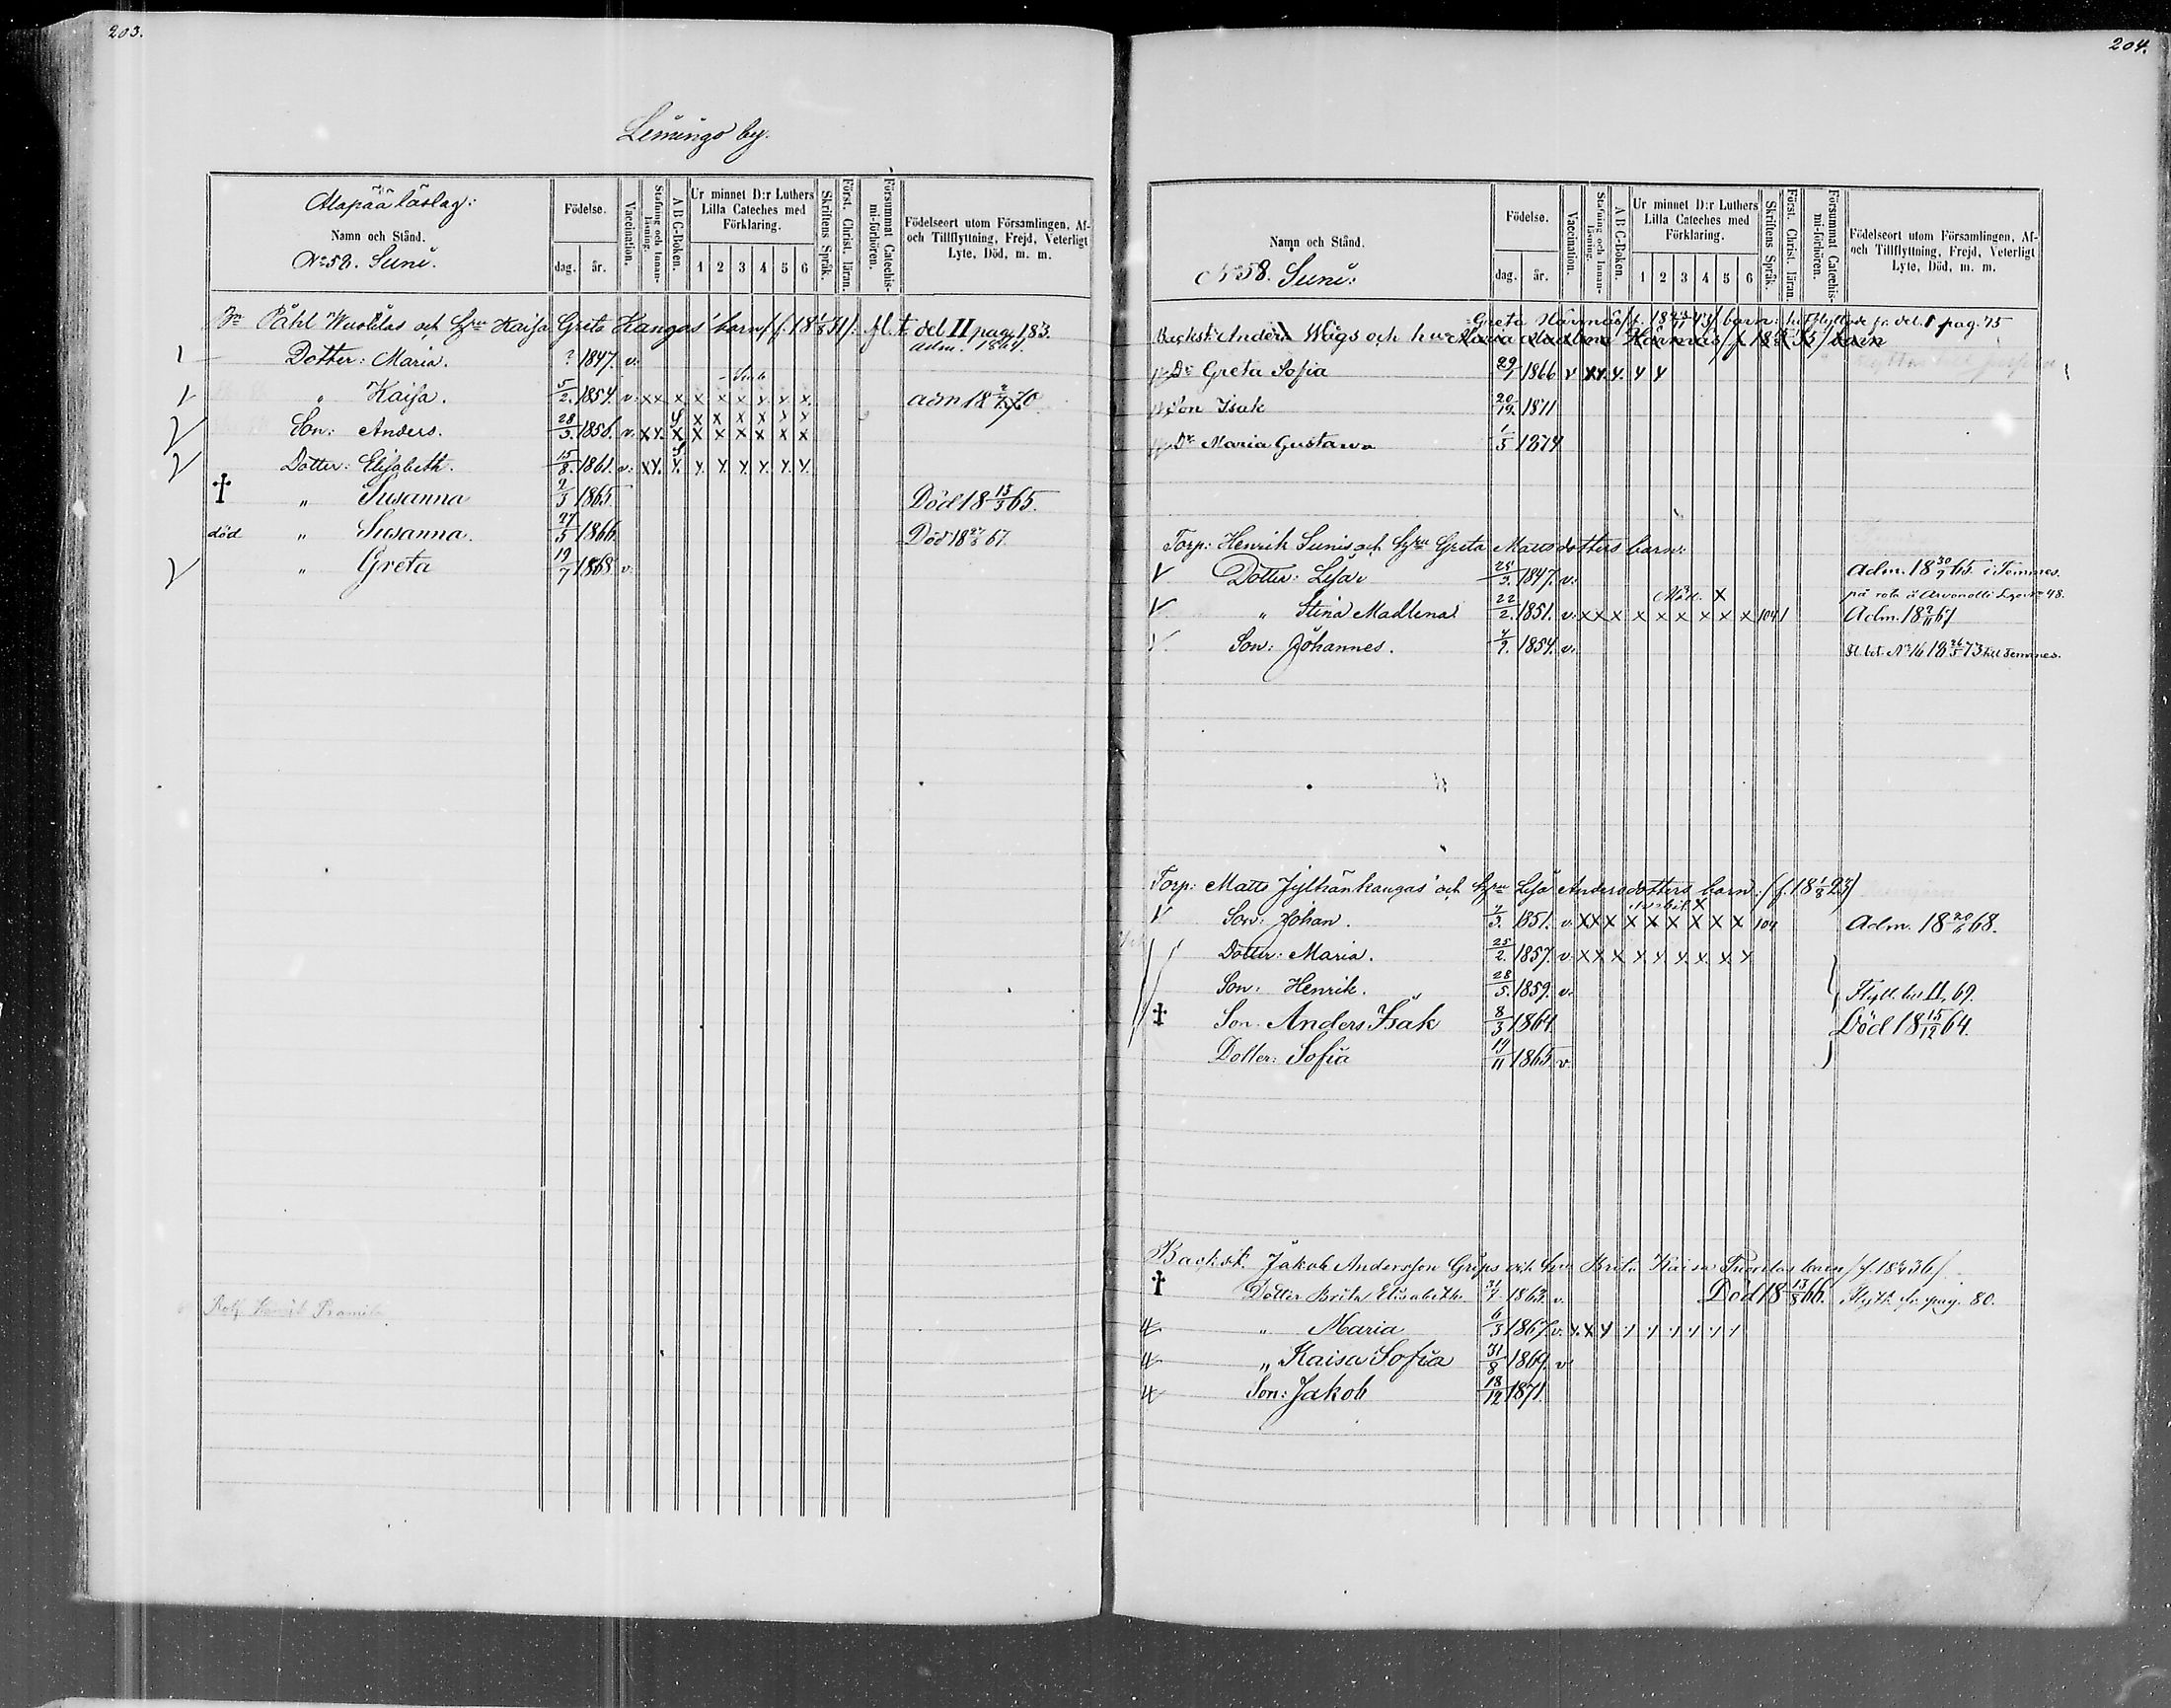 203.
Lemingo by.
Alapää läslag:
Namn och Stånd.
No 58. Suni.
Födelse.
dag. år.
Vaccination.
Stafning och Innanläsning.
A B C-Boken.
Ur minnet D:r Luthers Lilla Cateches med Förklaring.
1 2 3 4 5 6
Skriftens Språk.
Först. Christ. läran.
Försummat Catechismi-förhören.
Födelseort utom Församlingen, Af- och Tillflyttning, Frejd, Veterligt Lyte, Död, m. m.
Bn Påhl Wuolilas och hru Kaisa Greta Kangas' barn /f. 18 1/8 31/. fl. t. del II pag. 183.
Dotter: Maria. ? 1847. v. adm. 1864.
" Kaisa. 5/2. 1854. v. x x x x x x x x x adm 18 70
Son: Anders. 28/3. 1858. v. x x x x x x x x x
Dotter: Elisabeth. 15/8. 1861. v. x x x x x x x x x
† " Susanna 2/3 1865 Död 18 13/3 65.
död " Susanna. 27/5 1866 Död 18 67.
" Greta 19/7 1868 v.
204.
Namn och Stånd.
No 58. Suni:
Födelse.
dag. år.
Vaccination.
Stafning och Innanläsning.
A B C-Boken.
Ur minnet D:r Luthers Lilla Cateches med Förklaring.
1 2 3 4 5 6
Skriftens Språk.
Först. Christ. läran.
Försummat Catechismi-förhören.
Födelseort utom Församlingen, Af- och Tillflyttning, Frejd, Veterligt Lyte, Död, m. m.
Greta Härmäs barn: hit flyttade fr. del. 1 pag. 75
Backst. Anders Wägs och hu
Dr Greta Sofia 29/7 1866 v x x x x x
Son Isak 20/12 1871
Dr Maria Gustava 1/5 1874
Torp: Henrik Sunis och hru Greta Mattsdotters barn:
Dotter: Lisa 25/2. 1847. v. Adm. 18 30/9 65 i Temmes.
" Stina Madlena 22/2. 1851. v. x x x x x x x x x 104 1 Adm. 18 67
Son: Johannes. 4/9. 1854. v. fl. bet. No 16 18 26/5 73 till Temmes.
Torp: Matts Jylhänkangas' och hru Lisa Andersdotters barn: /f. 18 1/8 23/
Son: Johan. 7/3. 1851. v. x x x x x x x x x 104 Adm. 18 20/6 68.
Dotter: Maria. 25/2. 1857. v. x x x x x x x x x
Son: Henrik. 28/5. 1859. v. Flytt. till II, 69.
† Son: Anders Isak 8/3 1864 Död 18 15/12 64.
Dotter: Sofia 19/11 1865 v.
Backst. Jakob Andersson Grips och hu Brita Kaisa barn /f. 18 36/.
† Dotter Brita Elisabeth 31/7 1863. v. Död 18 13/8 66. Flytt. fr. pag. 80.
" Maria 6/3 1867 v. x x x
" Kaisa Sofia 31/8 1869. v
Son: Jakob 18/12 1871.